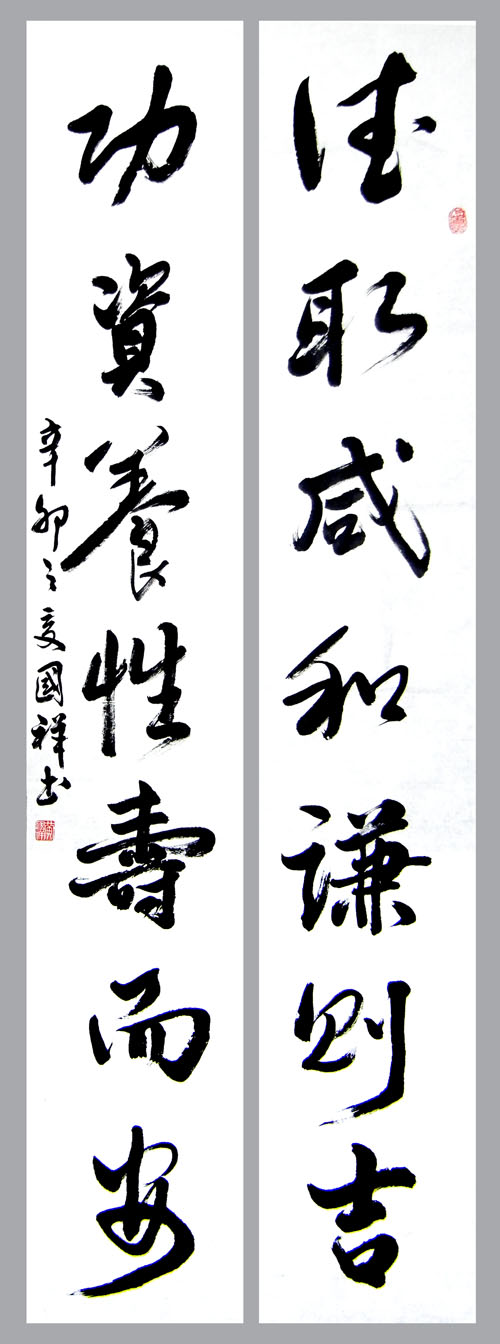 德取咸和謙則吉
功資養性壽而安
辛卯之夏國祥书